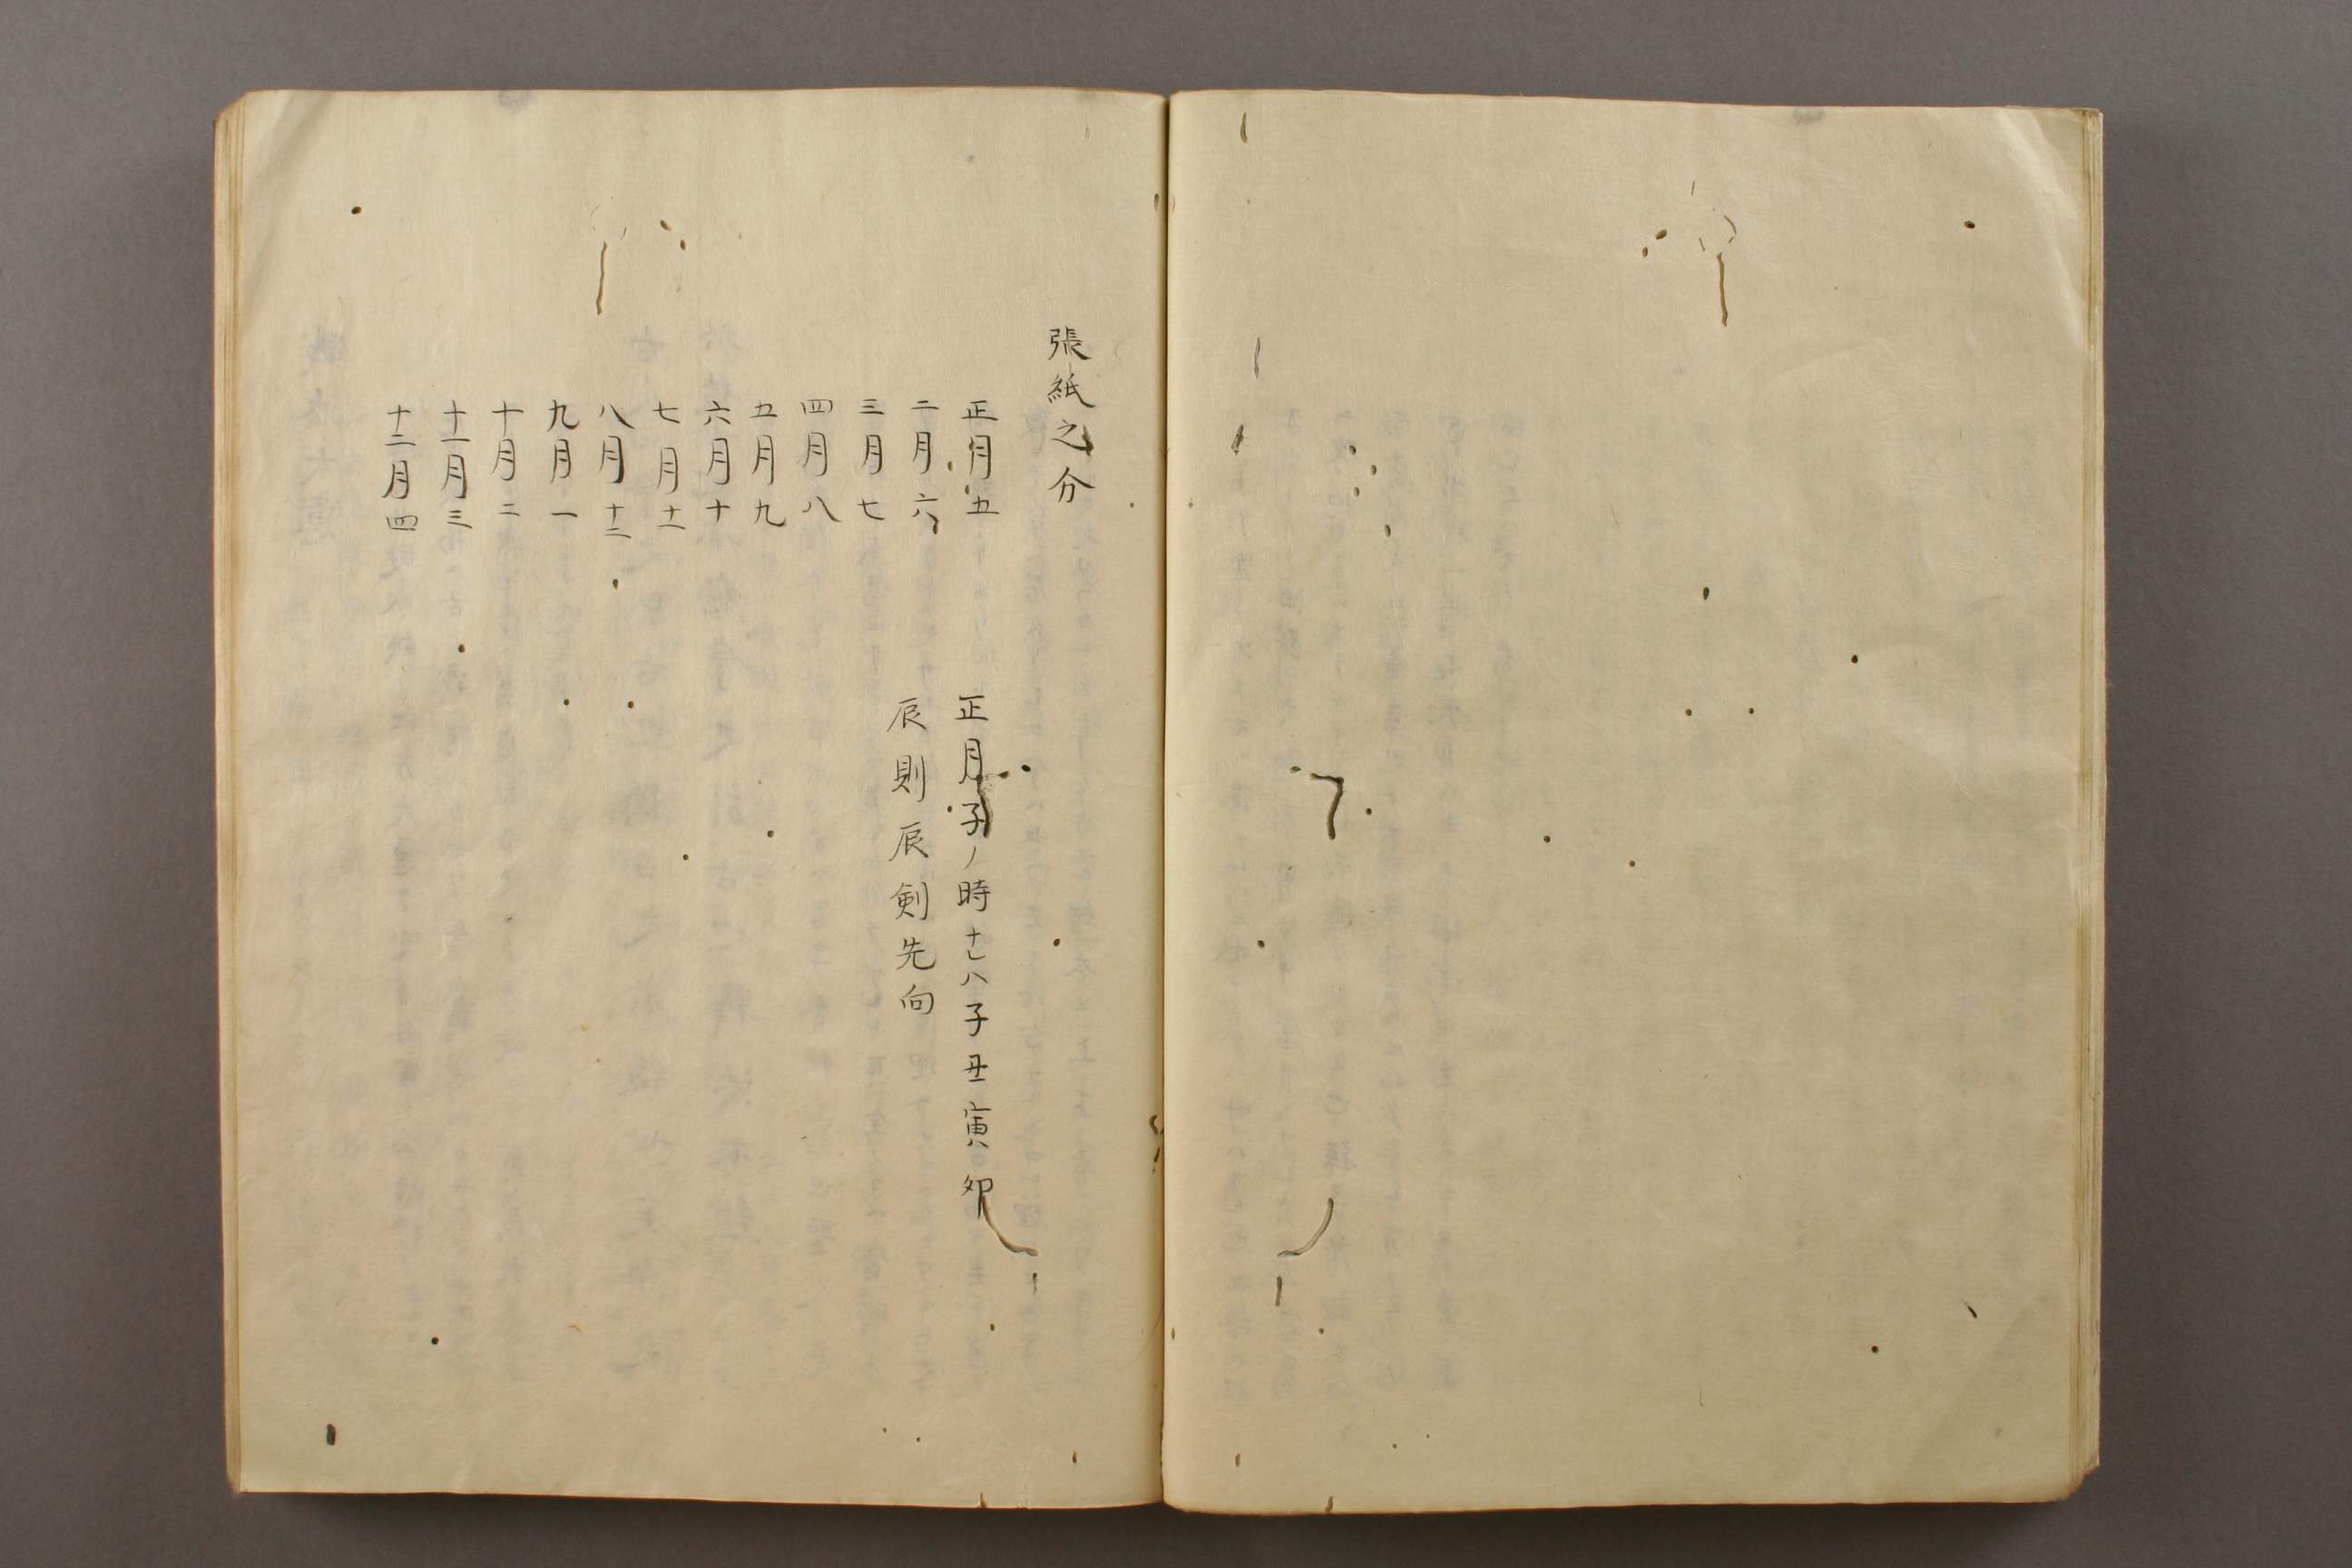 張紙之分
正月五
二月六
三月七
四月八
五月九
六月十
七月十一
八月十二
九月一
十月二
十一月三
十二月四
正月子ノ時ナレハ子丑寅夘
辰則辰剣先向